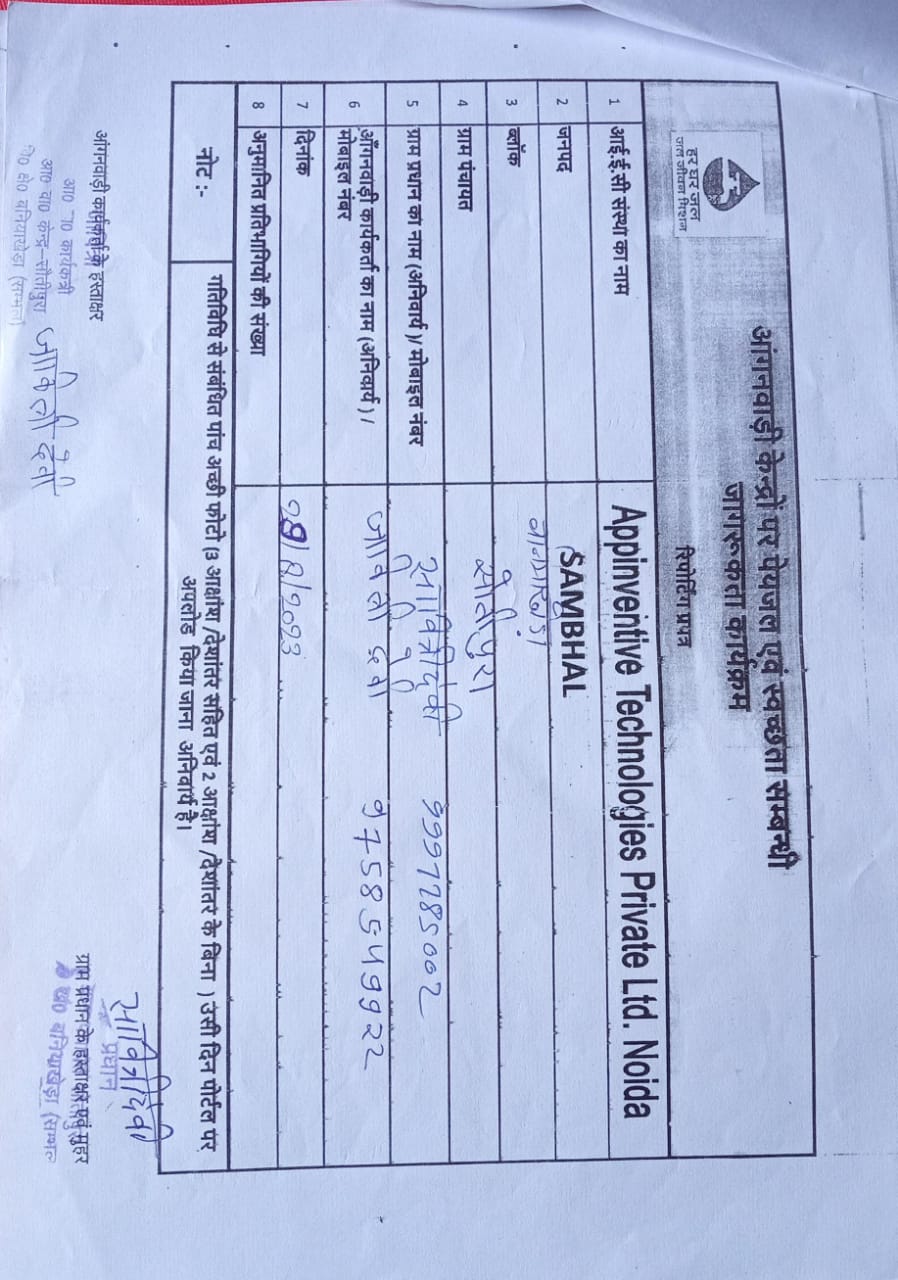 हर घर जल
जल जीवन मिशन
आंगनवाड़ी केन्द्रों पर पेयजल एवं स्वच्छता सम्बन्धी
जागरूकता कार्यक्रम
रिपोर्टिंग प्रपत्र
1 आई.ई.सी संस्था का नाम Appinventive Technologies Private Ltd. Noida
2 जनपद SAMBHAL
3 ब्लॉक
4 ग्राम पंचायत सौतीपुरा
5 ग्राम प्रधान का नाम (अनिवार्य )/ मोबाइल नंबर सावित्री देवी 9997785002
6 आँगनवाड़ी कार्यकर्ता का नाम (अनिवार्य ) /
मोबाइल नंबर जावित्री देवी 9758549922
7 दिनांक 29/8/2023
8 अनुमानित प्रतिभागियों की संख्या
नोट :- गतिविधि से संबंधित पांच अच्छी फोटो (3 आक्षांश /देशांतर सहित एवं 2 आक्षांश /देशांतर के बिना ) उसी दिन पोर्टल पर
अपलोड किया जाना अनिवार्य है।
आंगनवाड़ी कार्यकर्ता के हस्ताक्षर
आ० बा० कार्यकत्री
आ० बा० केन्द्र-सौतीपुरा
वि० क्षे० बनियाखेडा (सम्भल)
सावित्री देवी
प्रधान
ग्राम प्रधान के हस्ताक्षर एवं मुहर
बनियाखेड़ा (सम्भल